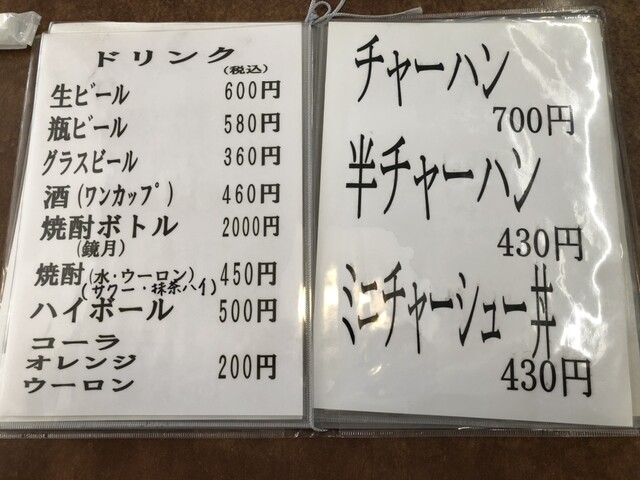 ドリンク
(税込)
生ビール 600円
瓶ビール 580円
グラスビール 360円
酒(ワンカップ) 460円
焼酎ボトル 2000円
(鏡月)
焼酎(水・ウーロン) 450円
(サワー・抹茶ハイ)
ハイボール 500円
コーラ
オレンジ 200円
ウーロン
チャーハン
700円
半チャーハン
430円
ミニチャーシュー丼
430円